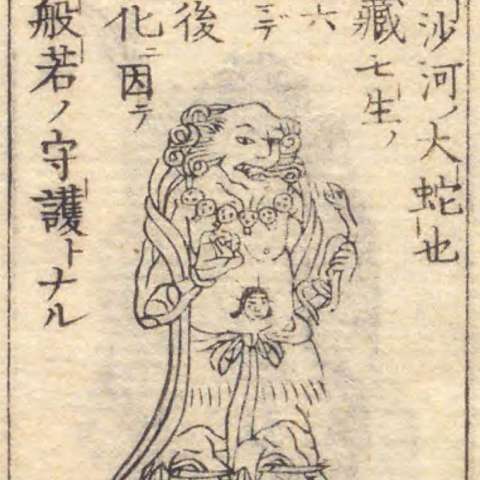 沙河ノ大蛇也
藏七生ノ
六
ニデ
後
化ニ因テ
般若ノ守護トナル